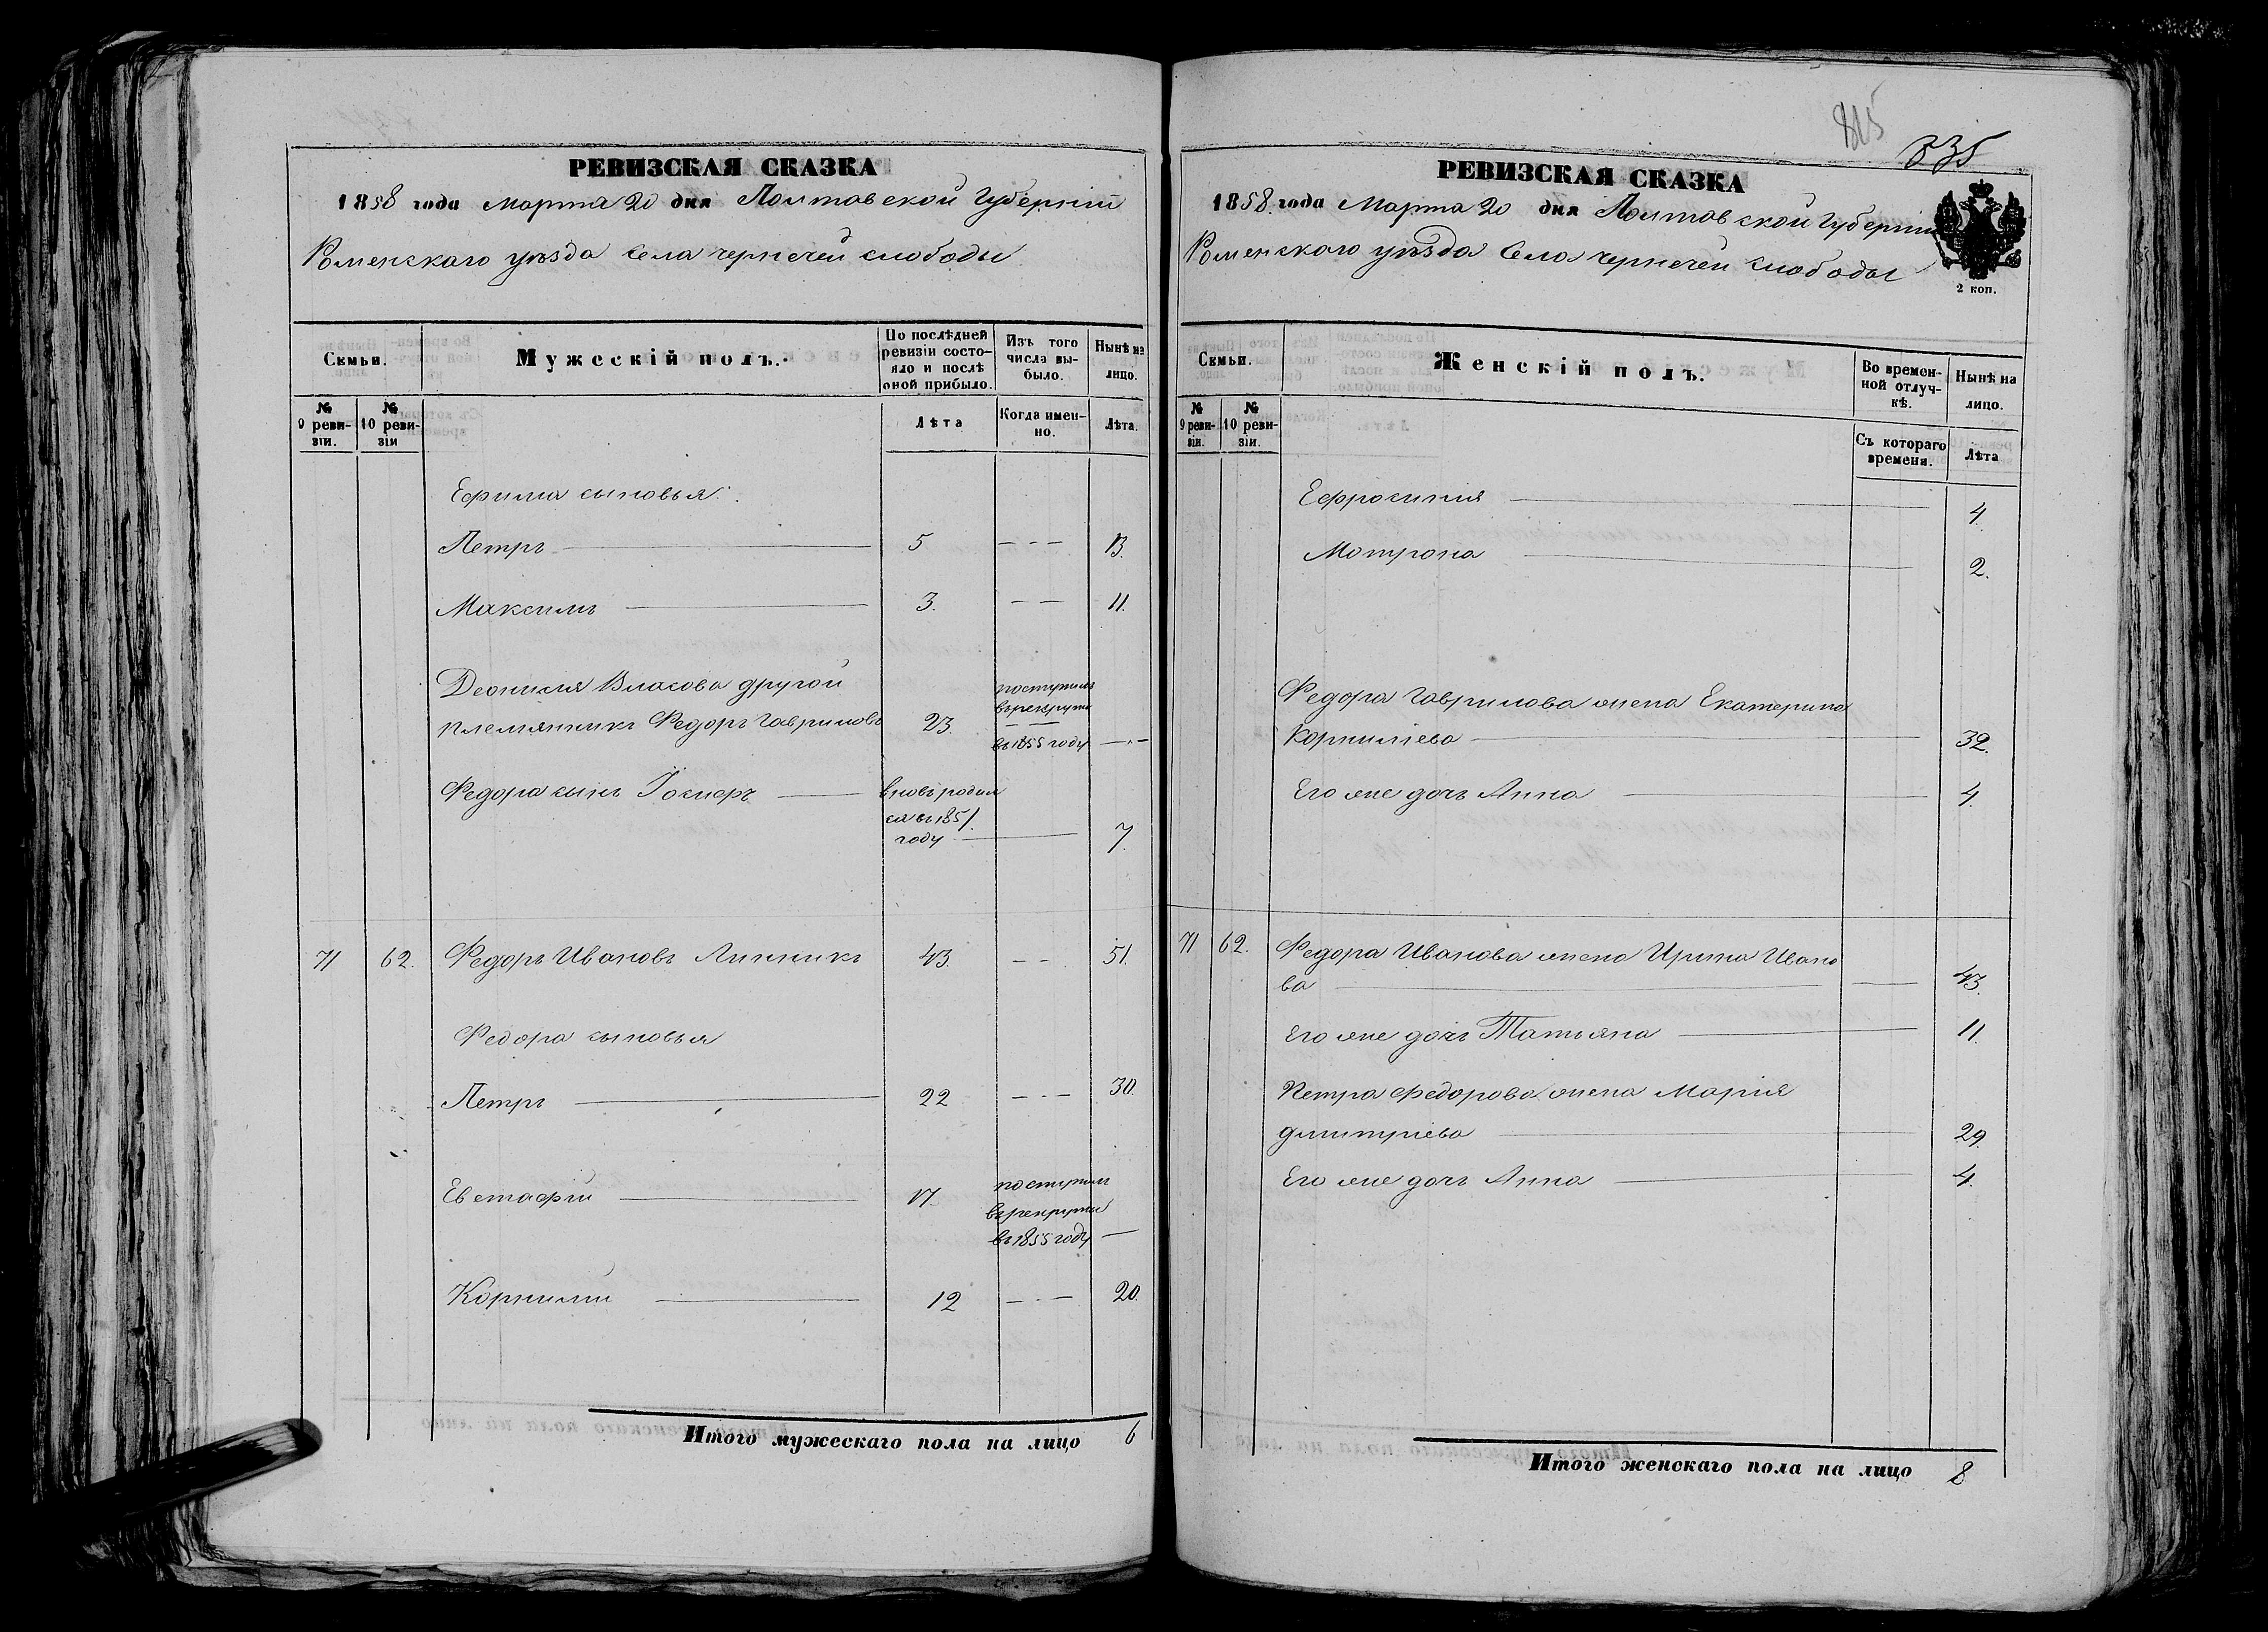 РЕВИЗСКАЯ СКАЗКА
1858 года Марта 20 дня Полтавской Губерніи
Роменскаго уѣзда Села чернечей слободы
Семьи.
Мужескій полъ.
По послѣдней ревизіи состояло и послѣ оной прибыло.
Изъ того числа выбыло.
Нынѣ на лицо.
№ 9 ревизіи.
№ 10 ревизіи
Лѣта
Когда именно.
Лѣта.
Ефима сыновья:
Петръ 5 13.
Максимъ 3. 11.
Деонисія Власова другой
племянникъ Федоръ Гавриловъ 23. поступилъ въ рекруты въ 1855 году
Федора сынъ вновь родился въ 1851 году 7.
71 62. Федоръ Ивановъ Линникъ 43. 51.
Федора сыновья
Петръ 22 30.
Евстафій 17. поступилъ въ рекруты въ 1855 году
Корнилій 12 20.
Итого мужескаго пола на лицо 6
835
РЕВИЗСКАЯ СКАЗКА
1858 года Марта 20 дня Полтавской Губерніи
Роменскаго уѣзда Села чернечей слободы
2 коп.
Семьи.
Женскій полъ.
Во временной отлучкѣ.
Нынѣ на лицо.
№ 9 ревизіи.
№ 10 ревизіи.
Съ котораго времени.
Лѣта
Ефросинія 4.
Мотрона 2.
Федора Гаврилова жена Екатерина
Корнилієва 32.
Его же дочь Анна 4.
71 62. Федора Иванова жена Ирина Ивано
ва 43.
Его же дочь Татьяна 11.
Петра Федорова жена Марія
Дмитріева 29.
Его же дочь Анна 4.
Итого женскаго пола на лицо 8